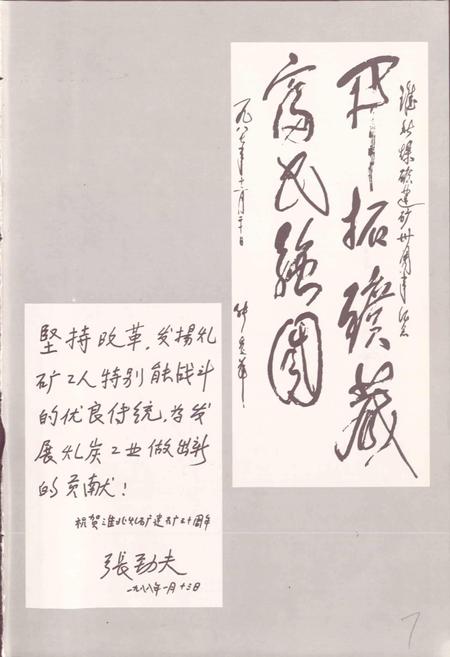 淮北煤礦建矿卅周年纪念
开拓礦藏
富民強國
一九八七年十一月二十日
堅持改革，发揚煤
矿工人特别能战斗
的优良传统，为发
展煤炭工业做出新
的贡献！
祝贺淮北煤矿建矿三十周年
張劲夫
一九八八年一月十三日
7